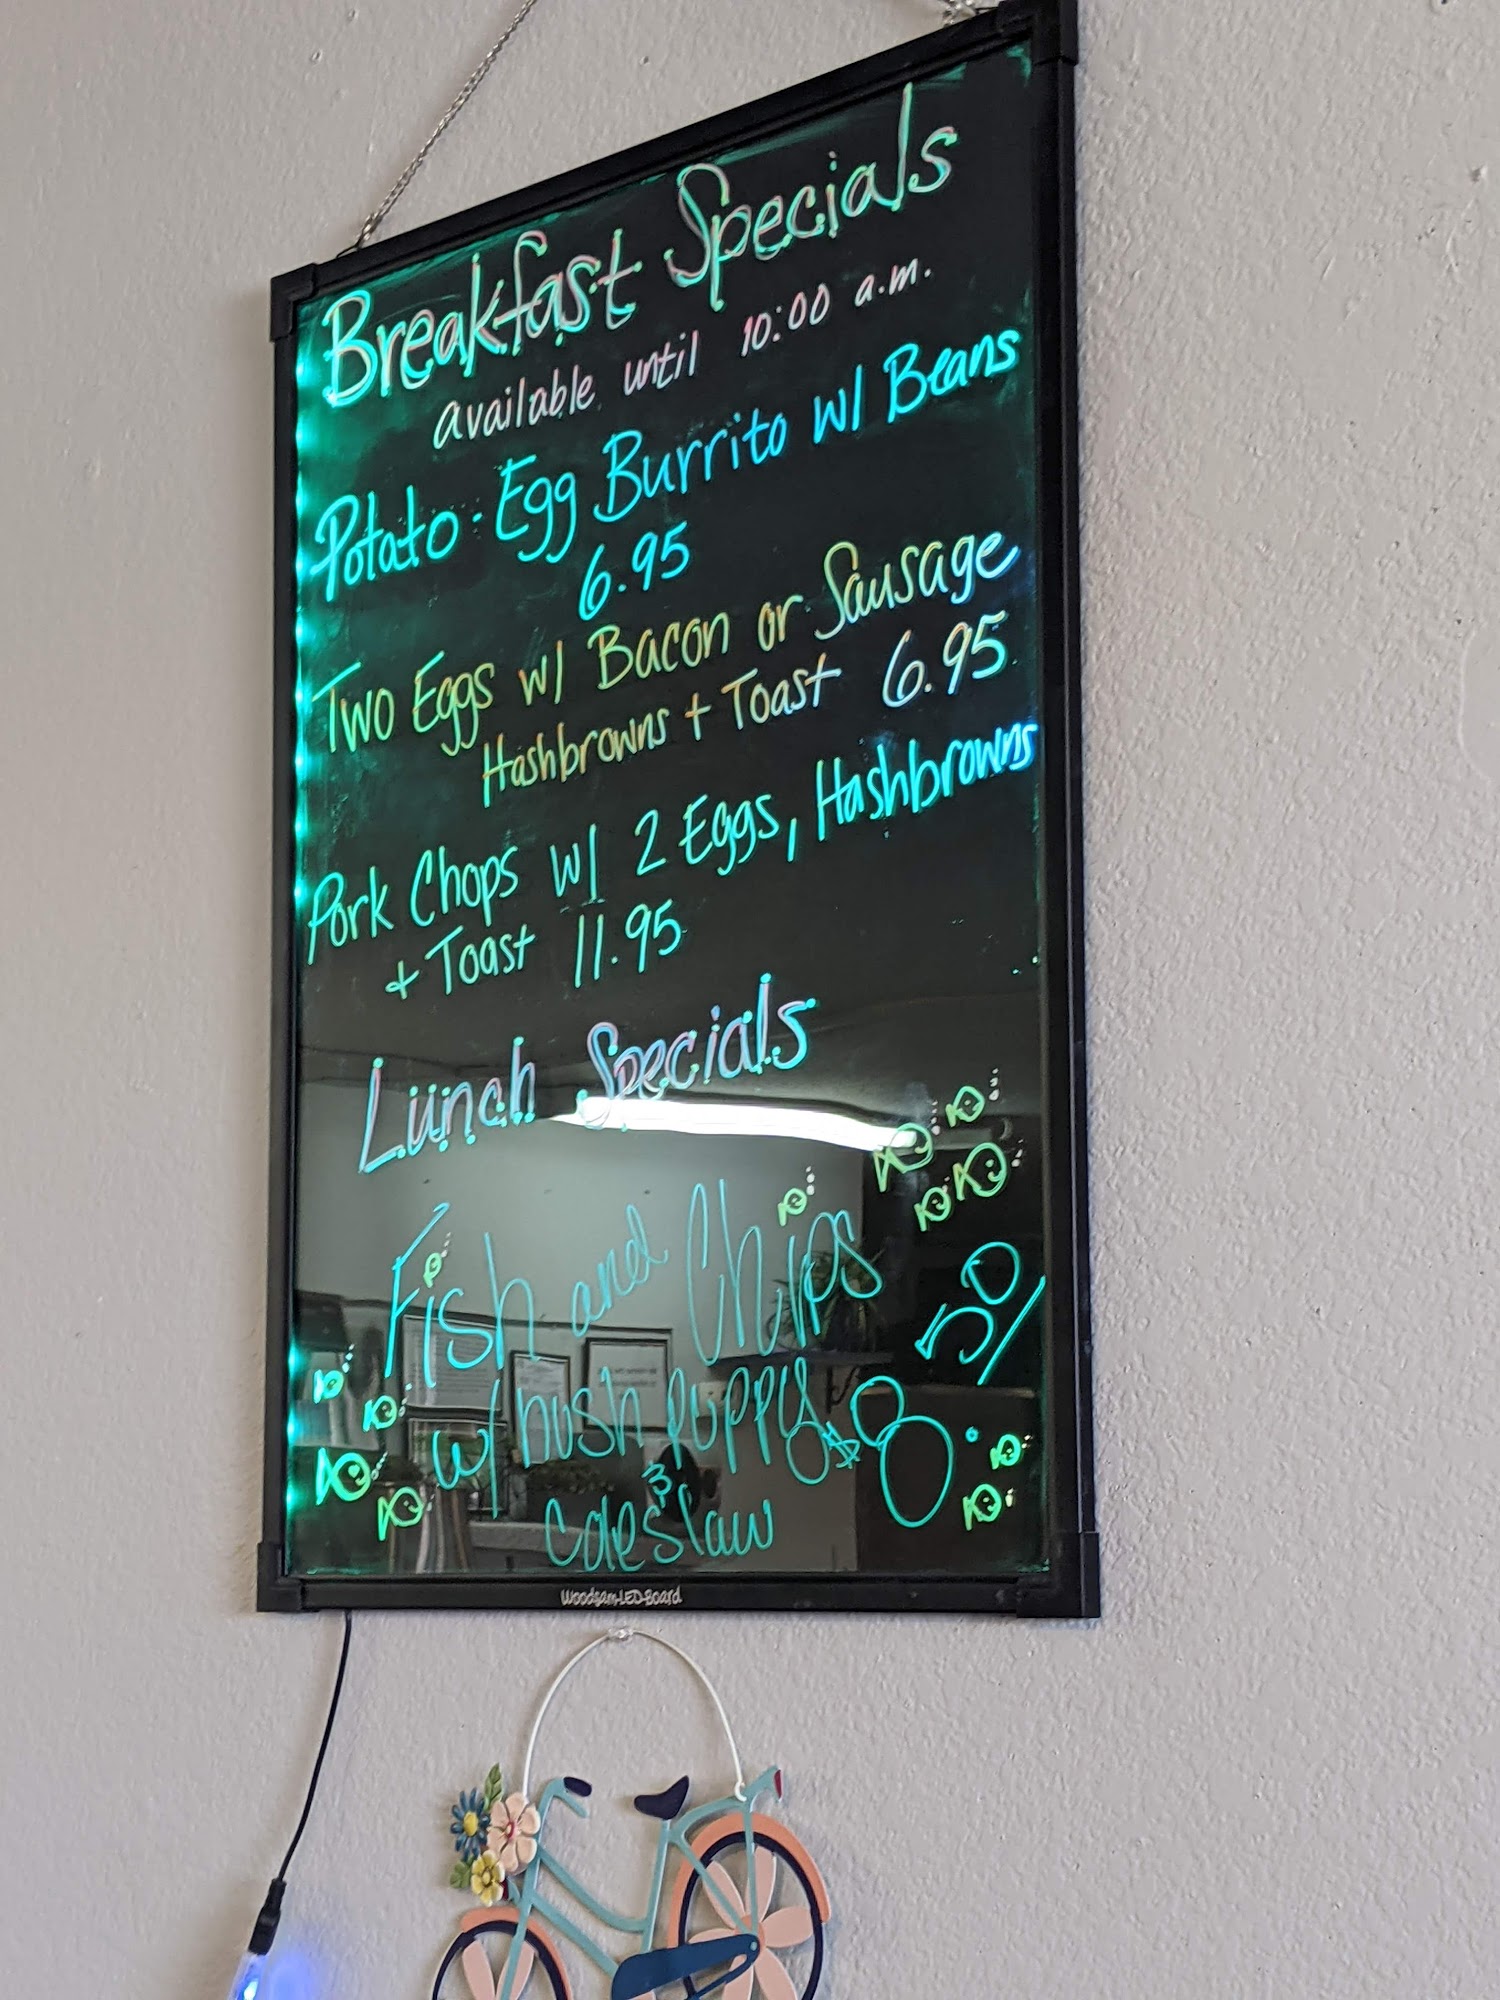 Breakfast Specials
available until 10:00 a.m.
Potato · Egg Burrito w/ Beans
6.95
Two Eggs w/ Bacon or Sausage
Hashbrowns + Toast 6.95
Pork Chops w/ 2 Eggs, Hashbrowns
+ Toast 11.95
Lunch Specials
Fish and Chips
w/ hush puppy $8.50/
& Coleslaw
Woodsam-LED-Board